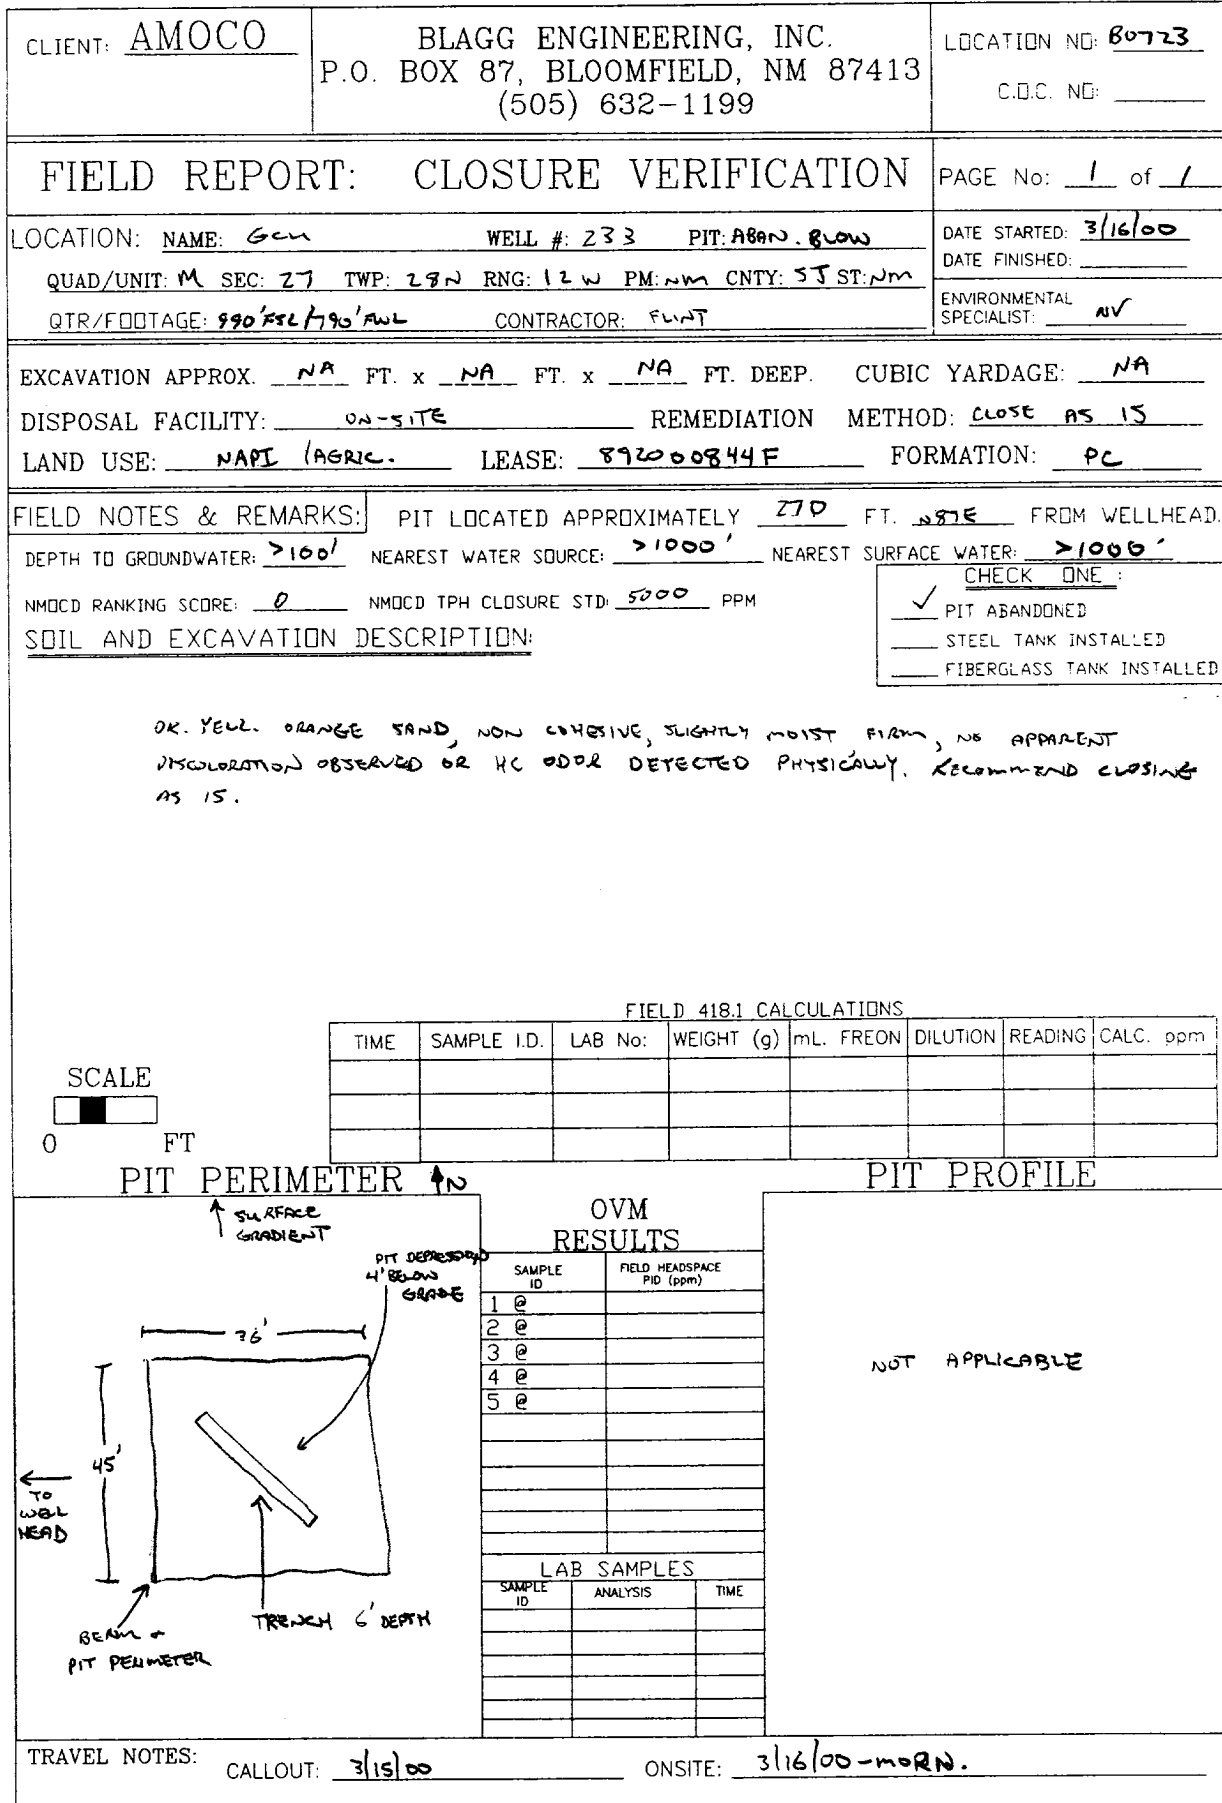 CLIENT: AMOCO
BLAGG ENGINEERING, INC.
P.O. BOX 87, BLOOMFIELD, NM 87413
(505) 632-1199
LOCATION NO: B0723
C.O.C. NO:
FIELD REPORT: CLOSURE VERIFICATION
PAGE No: 1 of 1
LOCATION: NAME: GCU WELL #: 233 PIT: ABAN. BLOW
QUAD/UNIT: M SEC: 27 TWP: 28N RNG: 12W PM: NM CNTY: SJ ST: NM
QTR/FOOTAGE: 990'FSL/790'FWL CONTRACTOR: FLINT
DATE STARTED: 3/16/00
DATE FINISHED:
ENVIRONMENTAL
SPECIALIST: NV
EXCAVATION APPROX. NA FT. x NA FT. x NA FT. DEEP. CUBIC YARDAGE: NA
DISPOSAL FACILITY: ON-SITE REMEDIATION METHOD: CLOSE AS IS
LAND USE: NAPI /AGRIC. LEASE: 892000844F FORMATION: PC
FIELD NOTES & REMARKS: PIT LOCATED APPROXIMATELY 270 FT. N87E FROM WELLHEAD.
DEPTH TO GROUNDWATER: >100' NEAREST WATER SOURCE: >1000' NEAREST SURFACE WATER: >1000'
NMOCD RANKING SCORE: 0 NMOCD TPH CLOSURE STD: 5000 PPM
CHECK ONE :
✓ PIT ABANDONED
STEEL TANK INSTALLED
FIBERGLASS TANK INSTALLED
SOIL AND EXCAVATION DESCRIPTION:
DK. YELL. ORANGE SAND, NON COHESIVE, SLIGHTLY MOIST FIRM, NO APPARENT
DISCOLORATION OBSERVED OR HC ODOR DETECTED PHYSICALLY. RECOMMEND CLOSING
AS IS.
FIELD 418.1 CALCULATIONS
TIME SAMPLE I.D. LAB No: WEIGHT (g) mL. FREON DILUTION READING CALC. ppm
SCALE
0 FT
PIT PERIMETER N
PIT PROFILE
SURFACE
GRADIENT
PIT DEPRESSION
4' BELOW
GRADE
36'
45'
TO
WELL
HEAD
BERM
PIT PERIMETER
TRENCH 6' DEPTH
OVM
RESULTS
SAMPLE
ID
FIELD HEADSPACE
PID (ppm)
1 @
2 @
3 @
4 @
5 @
LAB SAMPLES
SAMPLE
ID
ANALYSIS
TIME
NOT APPLICABLE
TRAVEL NOTES: CALLOUT: 3/15/00 ONSITE: 3/16/00-MORN.